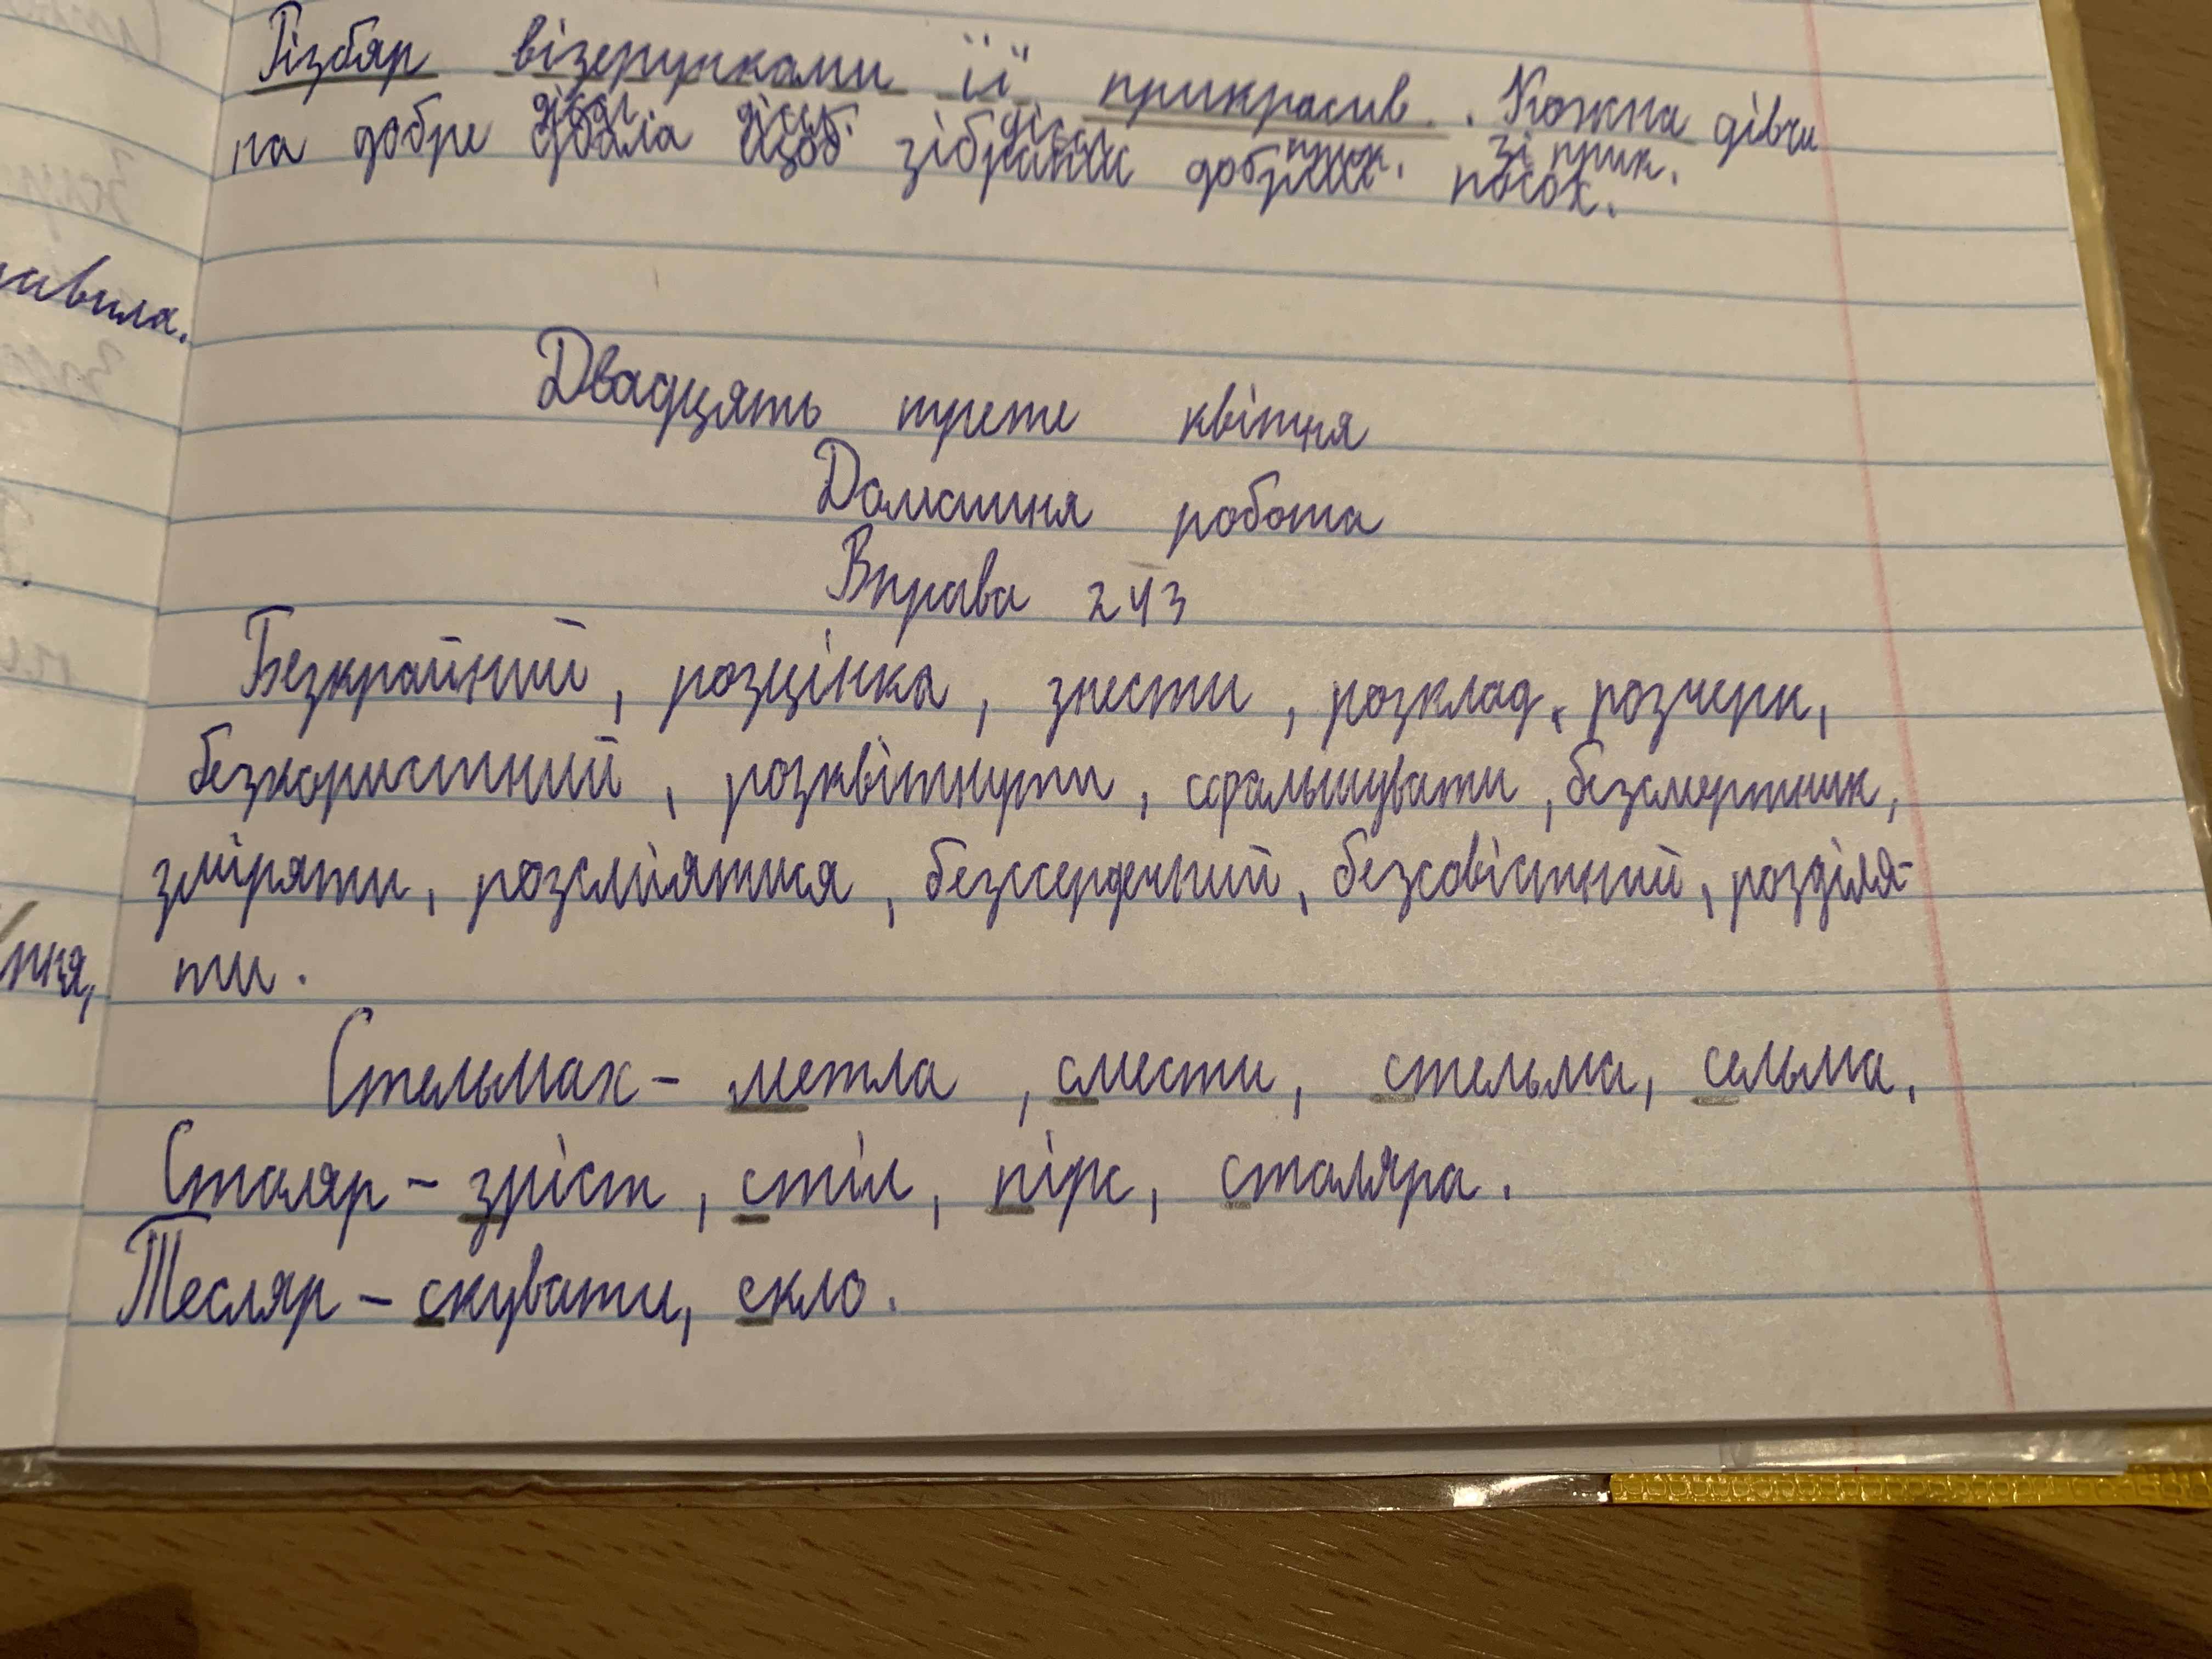 Різбяр візерунками її прикрасив. Кожна дівчи
на добре дбала щоб зібрати добрий посох.
авила.
Двадцять трете квітня
Домашня робота
Вправа 243
Безкрайний, розцінка, знести, розклад, розчерк,
безкористний, розквітнути, сфальшувати, безсмертник,
зміряти, розсміятися, безсердечний, безсовістний, розділя-
ти.
Стельмах - метла, смести, стельма, сельма,
Столяр - зріст, стіл, пірс, століяра.
Тесляр - скувати, скло.